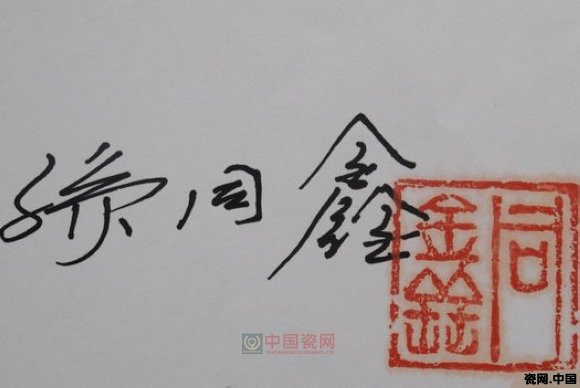 同鑫
同鑫
中国瓷网
ZHONGGUOCIWANG.CN
瓷网.中国